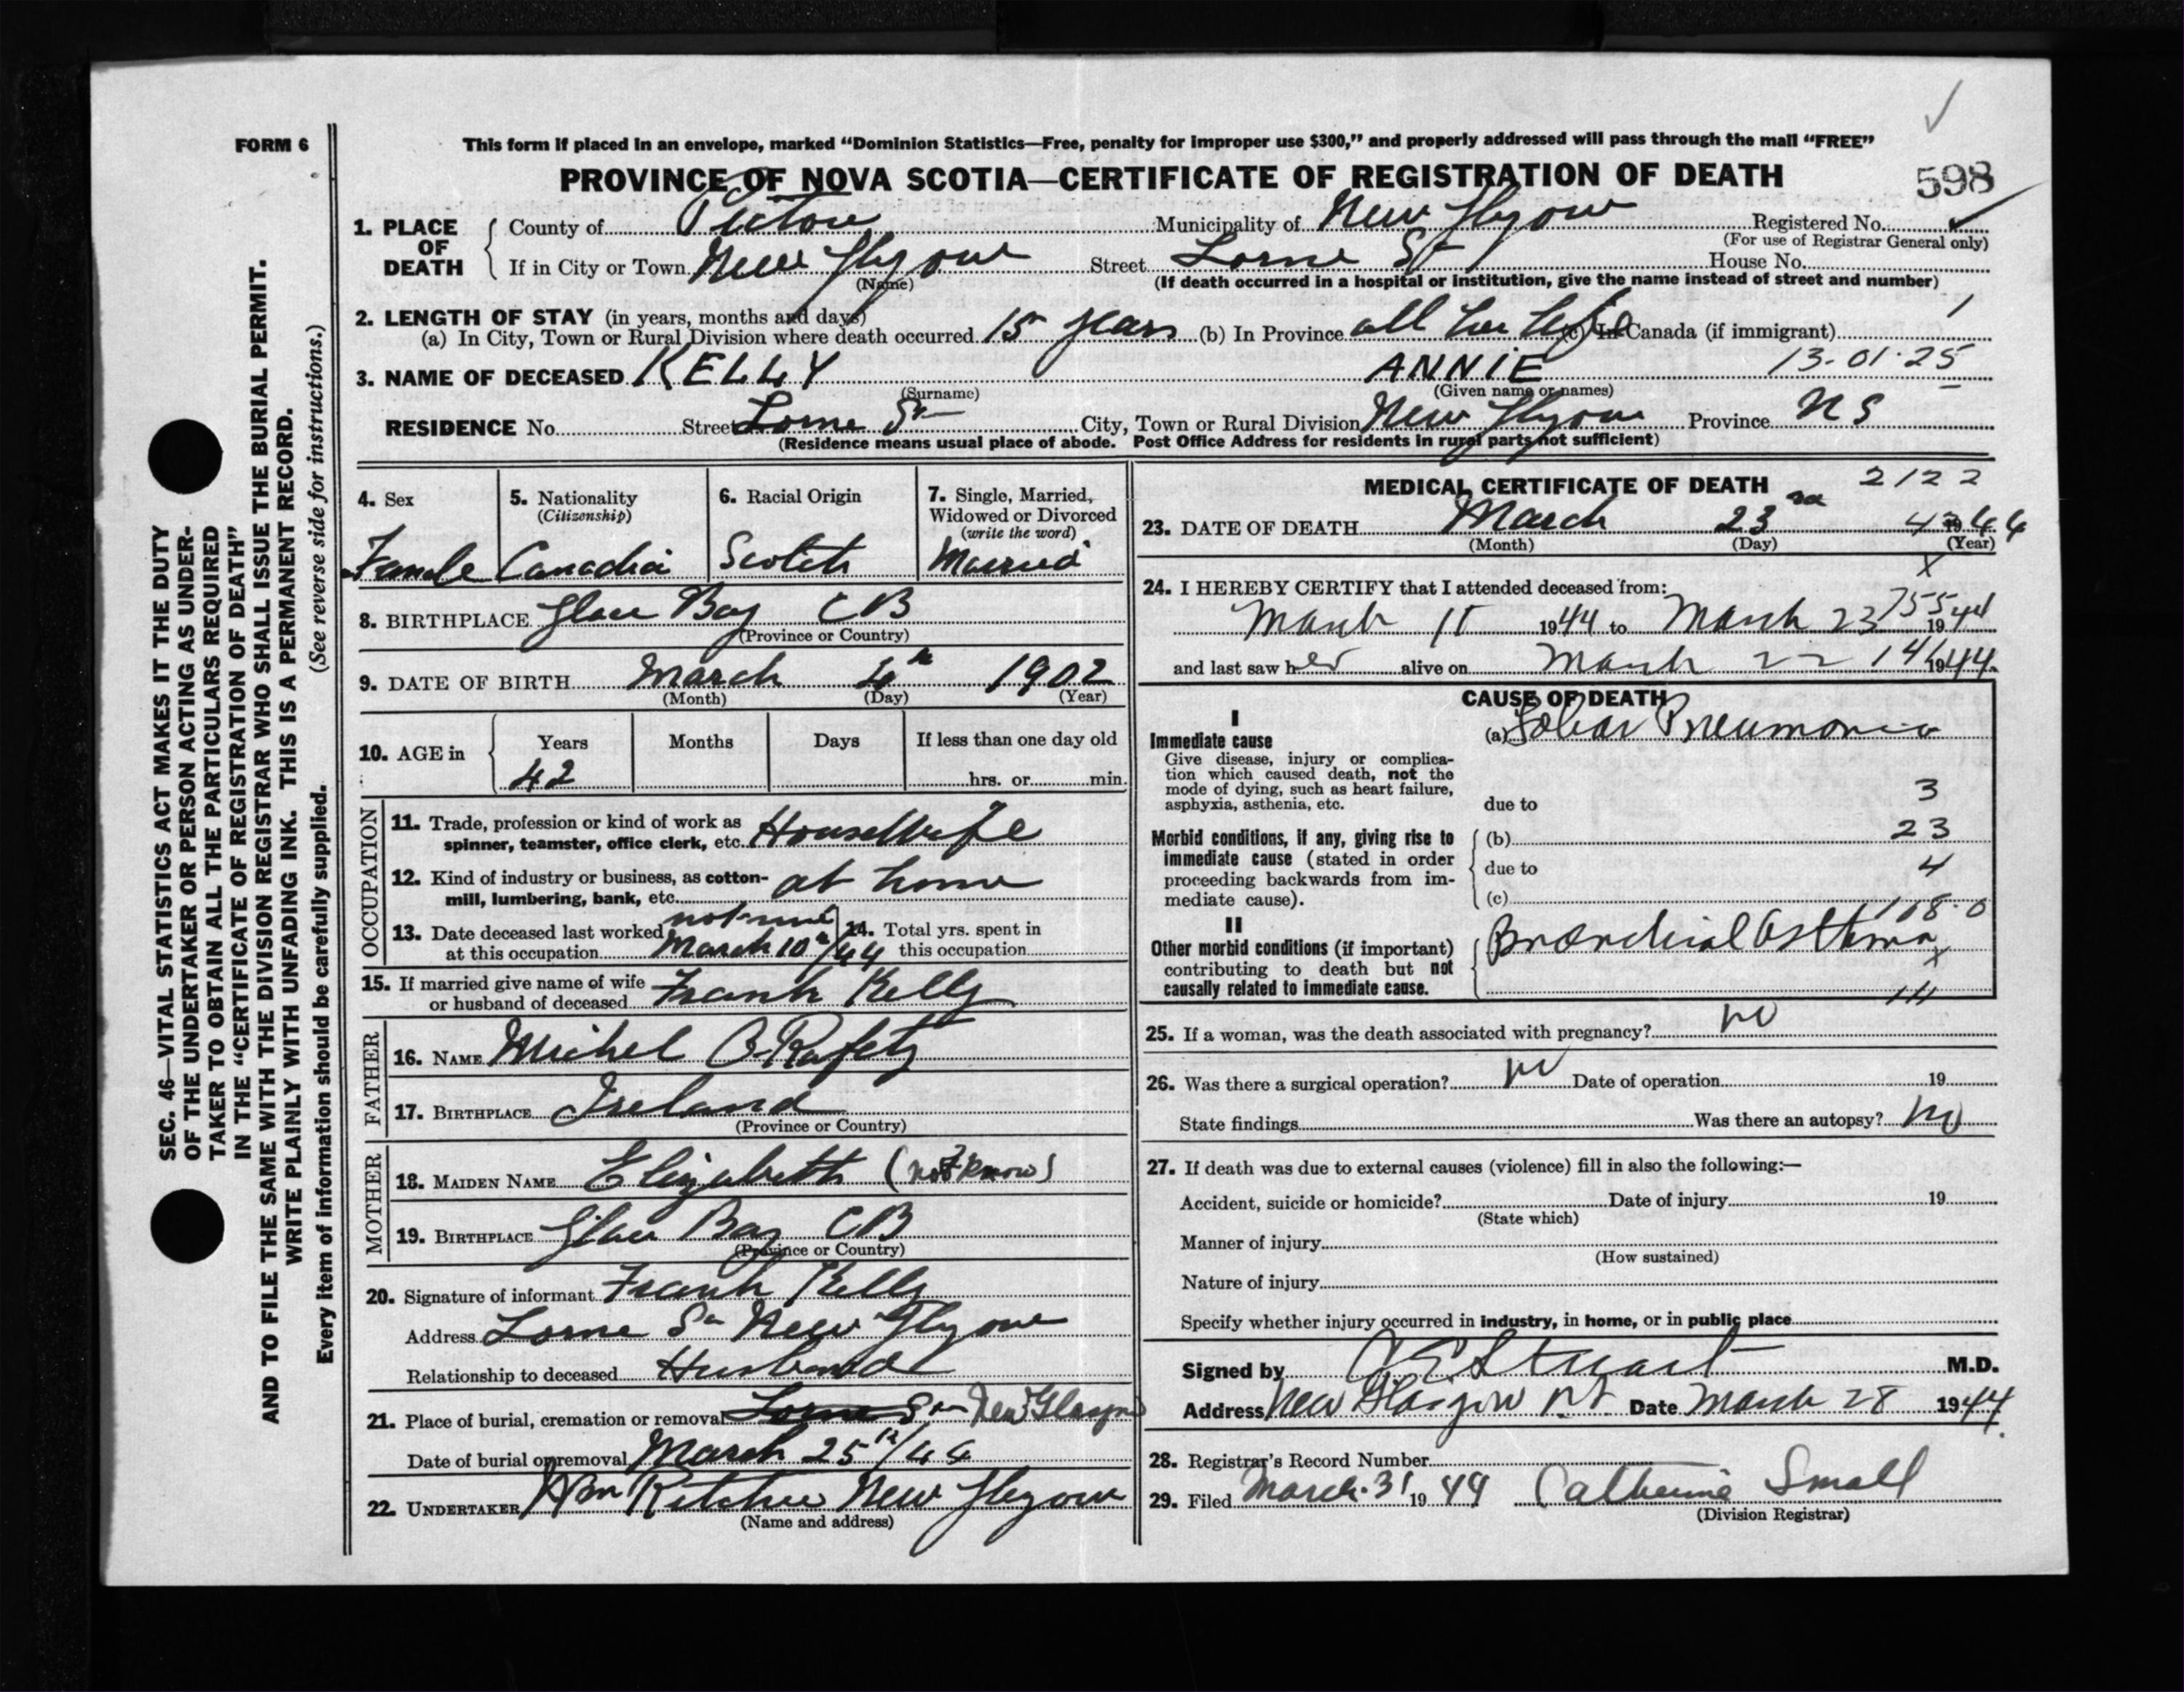 FORM 6
This form if placed in an envelope, marked "Dominion Statistics—Free, penalty for improper use $300," and properly addressed will pass through the mail "FREE"
PROVINCE OF NOVA SCOTIA—CERTIFICATE OF REGISTRATION OF DEATH
598
1. PLACE OF DEATH
County of Pictou Municipality of New Glgow Registered No.
(For use of Registrar General only)
If in City or Town New Glgow Street Lorne St House No.
(Name) (If death occurred in a hospital or institution, give the name instead of street and number)
2. LENGTH OF STAY (in years, months and days)
(a) In City, Town or Rural Division where death occurred 15 years (b) In Province all her life (c) In Canada (if immigrant)
3. NAME OF DECEASED KELLY ANNIE 13-01-25
(Surname) (Given name or names)
RESIDENCE No. Street Lorne St City, Town or Rural Division New Glgow Province N S
(Residence means usual place of abode. Post Office Address for residents in rural parts not sufficient)
4. Sex Female
5. Nationality (Citizenship) Canadian
6. Racial Origin Scotch
7. Single, Married, Widowed or Divorced (write the word) Married
8. BIRTHPLACE Glace Bay C B
(Province or Country)
9. DATE OF BIRTH March 1902
(Month) (Day) (Year)
10. AGE in Years Months Days If less than one day old
42 hrs. or min.
OCCUPATION
11. Trade, profession or kind of work as spinner, teamster, office clerk, etc. Housewife
12. Kind of industry or business, as cotton-mill, lumbering, bank, etc. at home
13. Date deceased last worked at this occupation March 10th/44
14. Total yrs. spent in this occupation
15. If married give name of wife or husband of deceased Frank Kelly
FATHER
16. NAME Michel O Rafety
17. BIRTHPLACE Ireland
(Province or Country)
MOTHER
18. MAIDEN NAME Elizabeth (not know)
19. BIRTHPLACE Glace Bay C B
(Province or Country)
20. Signature of informant Frank Kelly
Address Lorne St New Glgow
Relationship to deceased Husband
21. Place of burial, cremation or removal Lorne St New Glasgow
Date of burial or removal March 25th/44
22. UNDERTAKER Ritchie New Glgow
(Name and address)
MEDICAL CERTIFICATE OF DEATH 2122
23. DATE OF DEATH March 23rd 1944
(Month) (Day) (Year)
24. I HEREBY CERTIFY that I attended deceased from:
March 11 1944 to March 23 1944
and last saw her alive on March 22 1944
CAUSE OF DEATH
I
Immediate cause
Give disease, injury or complication which caused death, not the mode of dying, such as heart failure, asphyxia, asthenia, etc.
(a) Lobar Pneumonia
due to 3
Morbid conditions, if any, giving rise to immediate cause (stated in order proceeding backwards from immediate cause).
(b) 23
due to 4
(c) 108.0
II
Other morbid conditions (if important) contributing to death but not causally related to immediate cause.
Bronchial Asthma
111
25. If a woman, was the death associated with pregnancy? no
26. Was there a surgical operation? no Date of operation 19
State findings Was there an autopsy? no
27. If death was due to external causes (violence) fill in also the following:—
Accident, suicide or homicide? Date of injury 19
(State which)
Manner of injury
(How sustained)
Nature of injury
Specify whether injury occurred in industry, in home, or in public place
Signed by C E Stuart M.D.
Address New Glasgow NS Date March 28 1944
28. Registrar's Record Number
29. Filed March 31 1944 Catherine Small
(Division Registrar)
SEC. 46—VITAL STATISTICS ACT MAKES IT THE DUTY
OF THE UNDERTAKER OR PERSON ACTING AS UNDER-
TAKER TO OBTAIN ALL THE PARTICULARS REQUIRED
IN THE "CERTIFICATE OF REGISTRATION OF DEATH"
AND TO FILE THE SAME WITH THE DIVISION REGISTRAR WHO SHALL ISSUE THE BURIAL PERMIT.
WRITE PLAINLY WITH UNFADING INK. THIS IS A PERMANENT RECORD.
Every item of information should be carefully supplied. (See reverse side for instructions.)